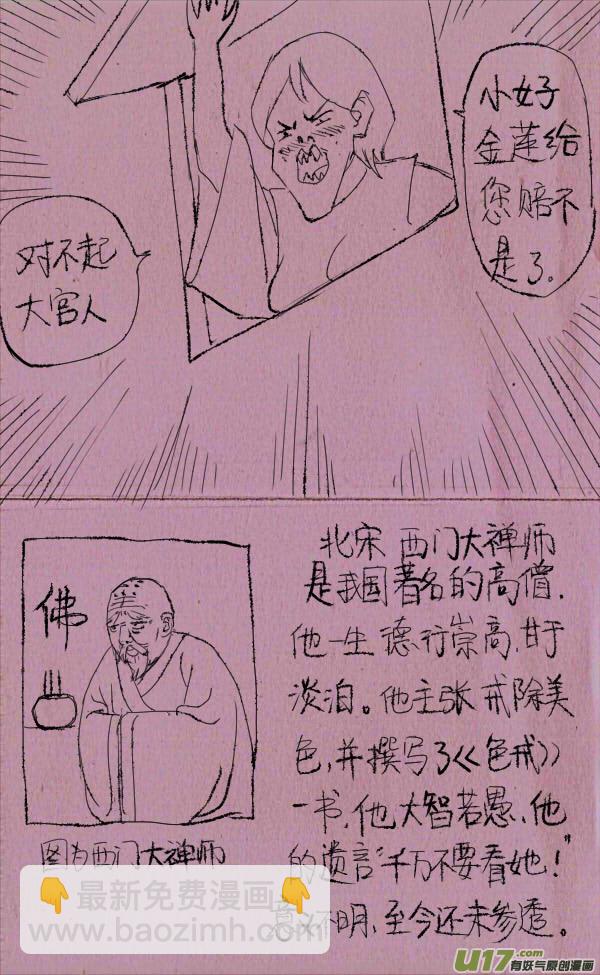 小好
金莲给
您赔不
是了。
对不起
大官人
北宋 西门大禅师
是我国著名的高僧.
他一生德行崇高.甘于
淡泊。他主张戒除美
色,并撰写了《色戒》
一书.他大智若愚.他
的遗言"千万不要看她!"
意义不明,至今还未参透。
佛
图为西门大禅师
最新免费漫画
www.baozimh.com
U17.com
有妖气原创漫画